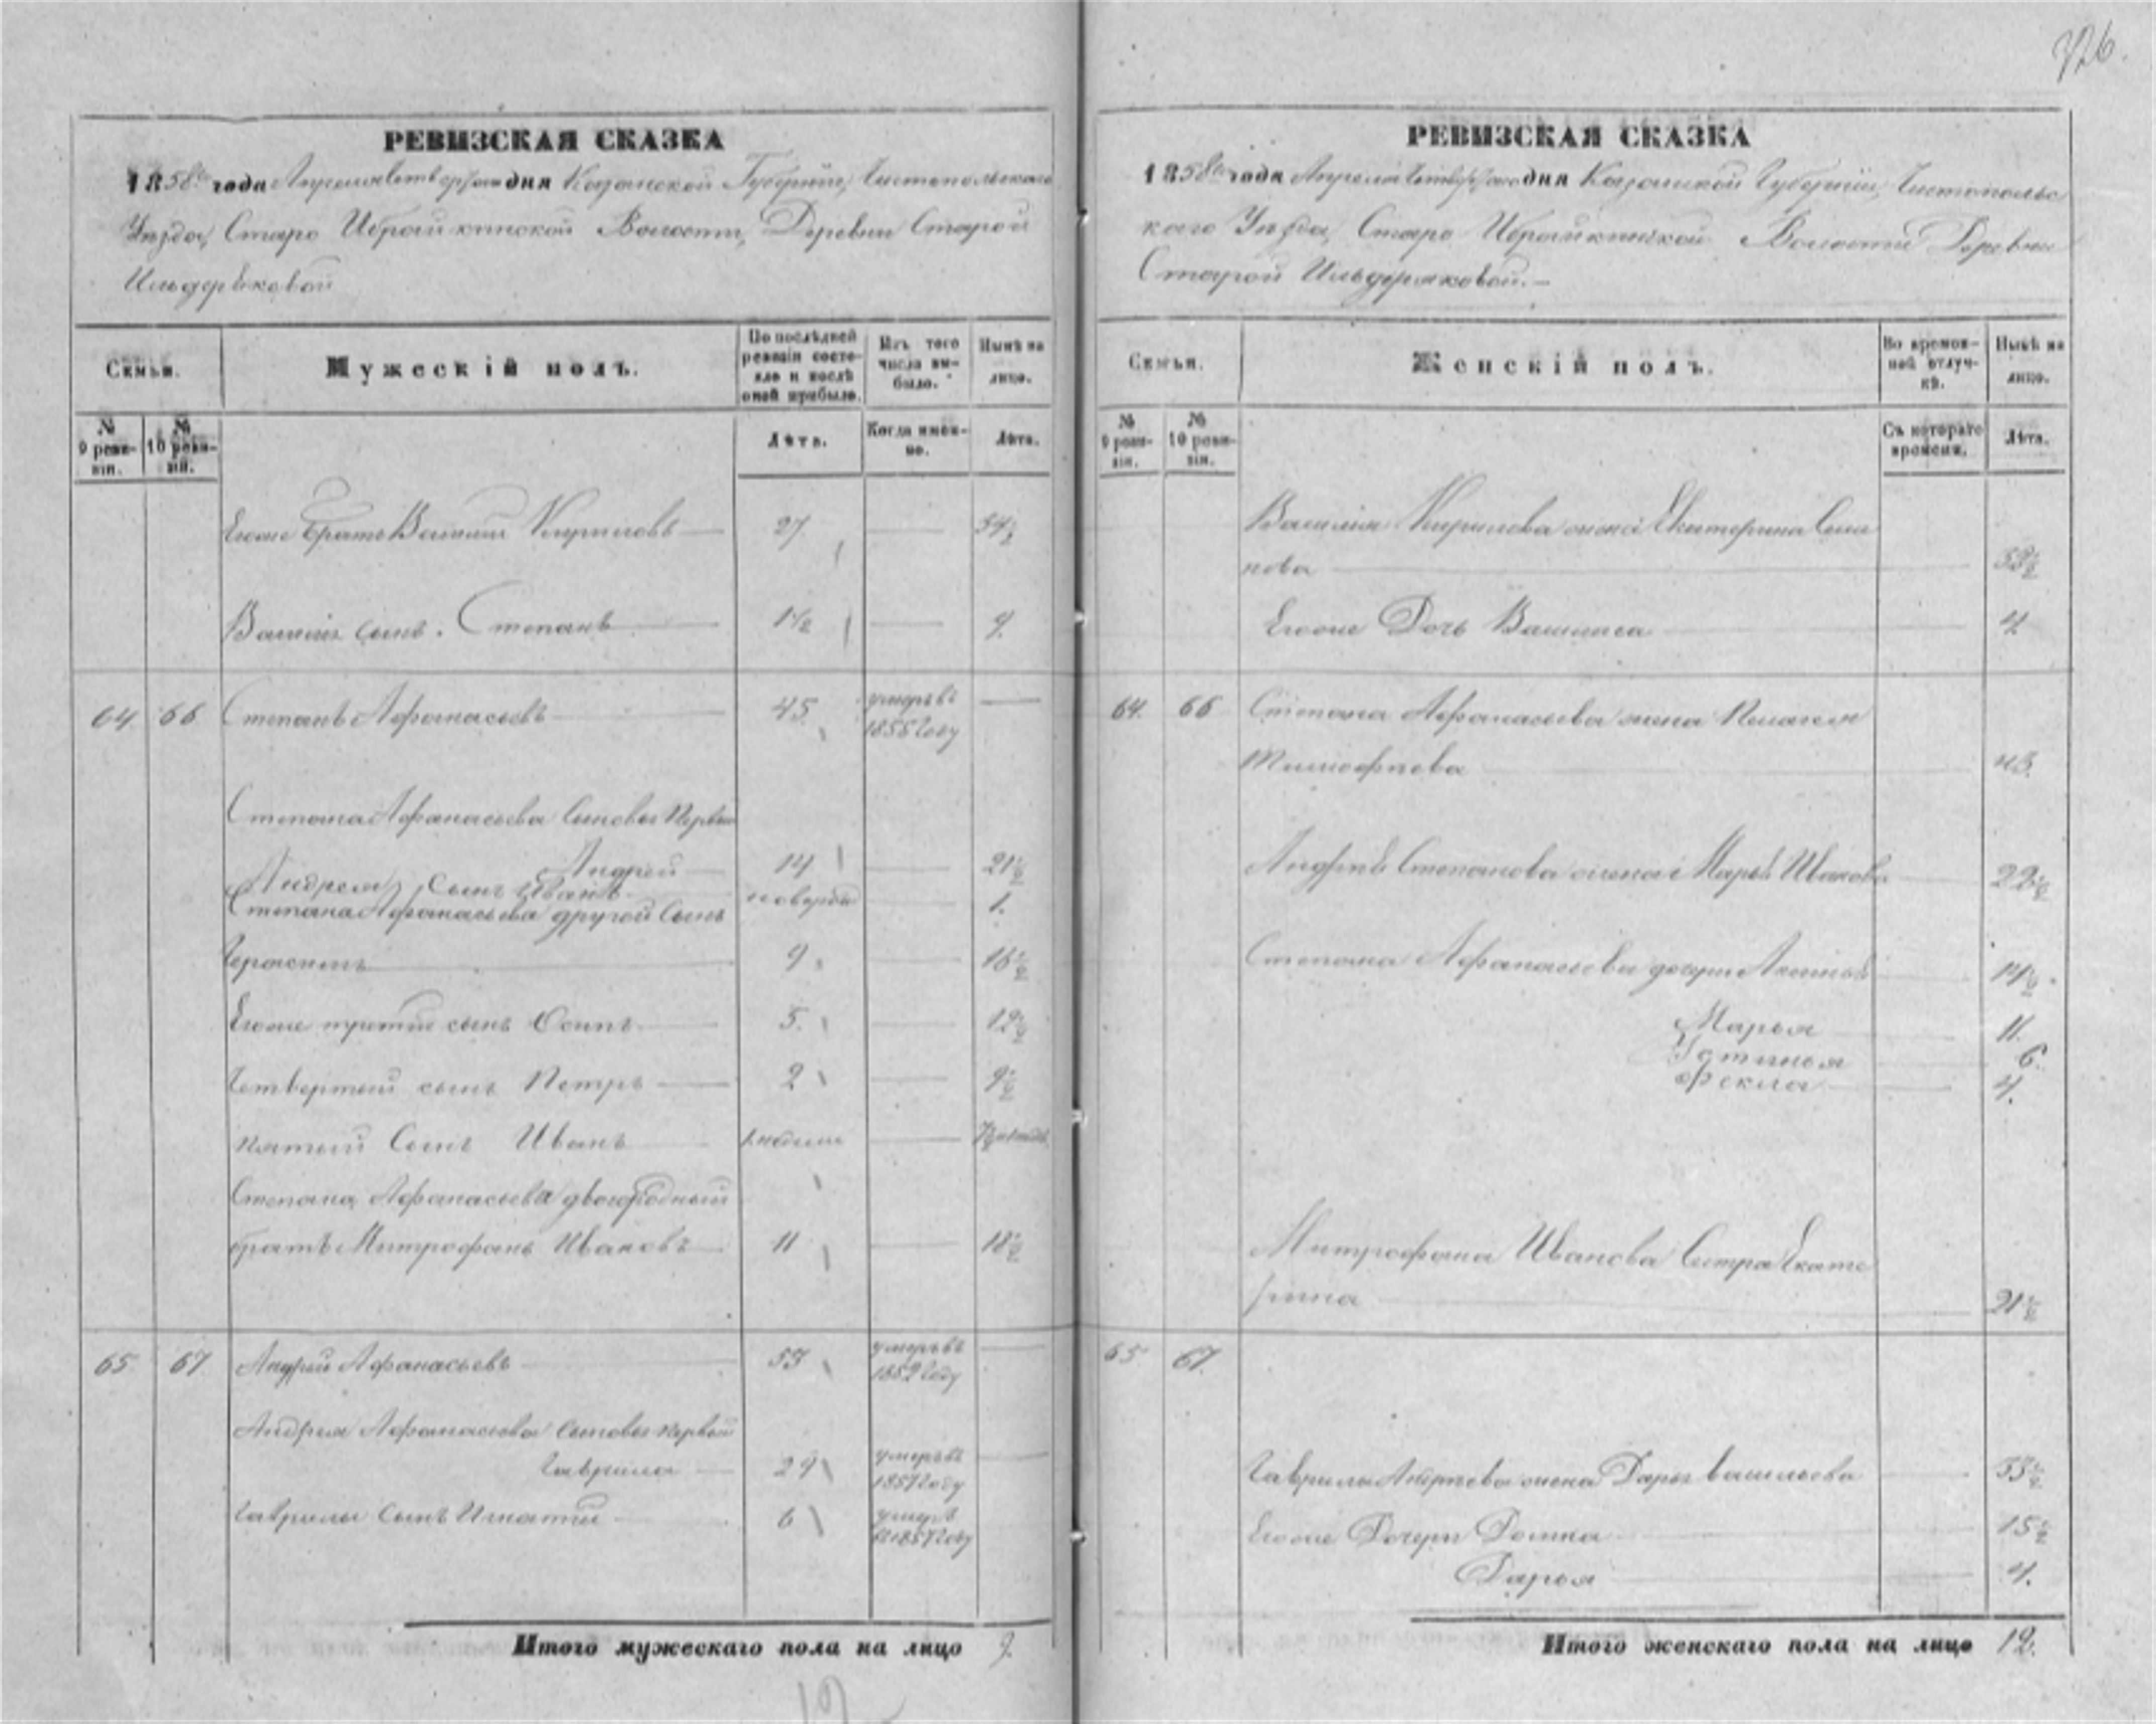 326.
РЕВИЗСКАЯ СКАЗКА
1858го года Апреля Четвертого дня Казанской Губернии, Чистопольскаго
Уѣзда, Старо Ибрайкинской Волости, Деревни Старой
Ильдеряковой
Семьи.
Мужескій полъ.
По послѣдней ревизіи состояло и послѣ оной прибыло.
Изъ того числа выбыло.
Нынѣ на лицо.
№ 9 ревизіи.
№ 10 ревизій.
Лѣта.
Когда именно.
Лѣта.
Егоже братъ Василий Кириловъ 27
Василія сынъ. Степанъ 1½ 9.
64. 66 Степанъ Афанасьевъ 45 умеръ въ
Степана Афанасьева Сыновья Первый
Андрей 14 21½
Андрея сынъ Иванъ 1.
Степана Афанасьева другой Сынъ
Герасимъ 9 16½
Егоже третий сынъ Осипъ 5. 12½
Четвертый сынъ Петръ 2 9½
пятый Сынъ Иванъ
Степана Афанасьева двоюродный
братъ Митрофанъ Ивановъ 11 18½
65 67 Андрей Афанасьевъ умеръ въ
1852 Году
Андрея Афанасьева Сыновья первый
Гаврила 29 умеръ въ
1857 году
Гаврилы Сынъ Игнатий 6 умеръ
1857 Году
Итого мужескаго пола на лицо 9.
РЕВИЗСКАЯ СКАЗКА
1858го года Апреля Четвертого дня Казанской Губернии, Чистопольс
каго Уѣзда, Старо Ибрайкинской Волости Деревни
Старой Ильдеряковой.—
Семьи.
Женскій полъ.
Во временной отлучкѣ.
Нынѣ на лицо.
№ 9 ревизіи.
№ 10 ревизіи.
Съ котораго времени.
Лѣта.
Василия Кирилова жена Екатерина Семе
нова
Егоже Дочь Василиса 4
64. 66 Степана Афанасьева жена Пелагея
Тимофѣева
Андрея Степанова жена Марья Иванова 22½
Степана Афанасьева дочери
Марья 11.
Устинья 6.
Фекла 4.
Митрофана Иванова Сестра Екате
рина 21½
65 67.
Гаврилы Андреева жена Дарья Васильева 33½
Егоже Дочери Домна 15½
Дарья 4.
Итого женскаго пола на лицо 12.